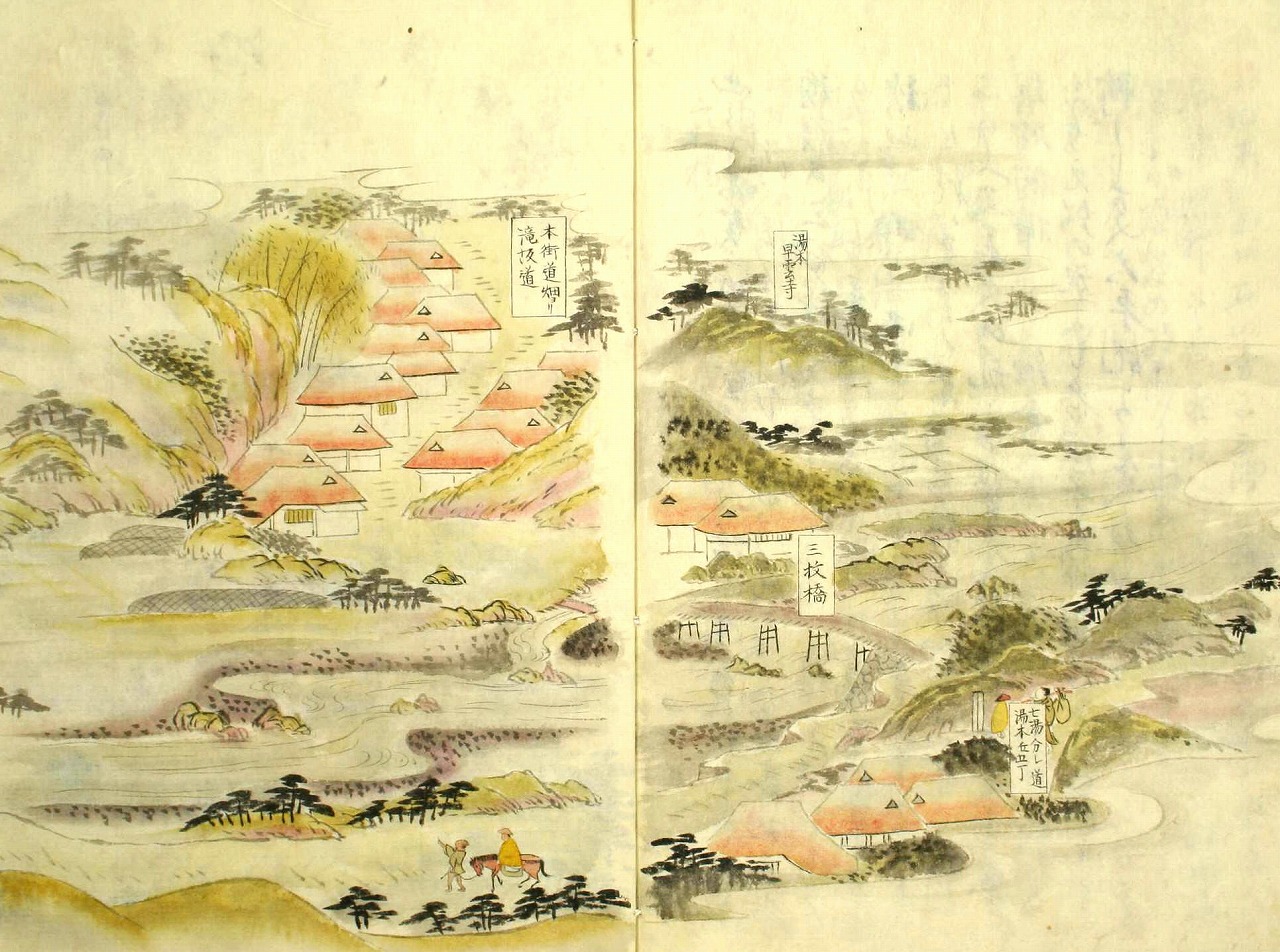 湯本
早雲寺
三枚橋
七湯分レ道
湯本
本街道
滝坂道